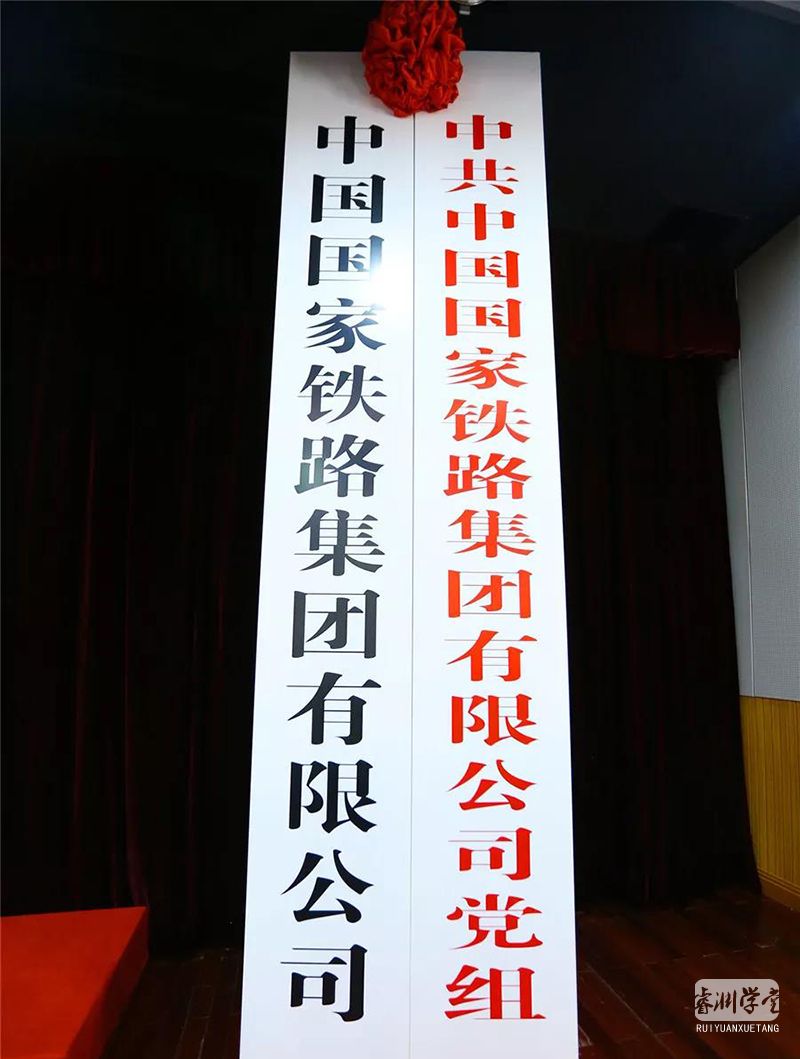 中国国家铁路集团有限公司
中共中国国家铁路集团有限公司党组
睿渊学堂
RUIYUANXUETANG